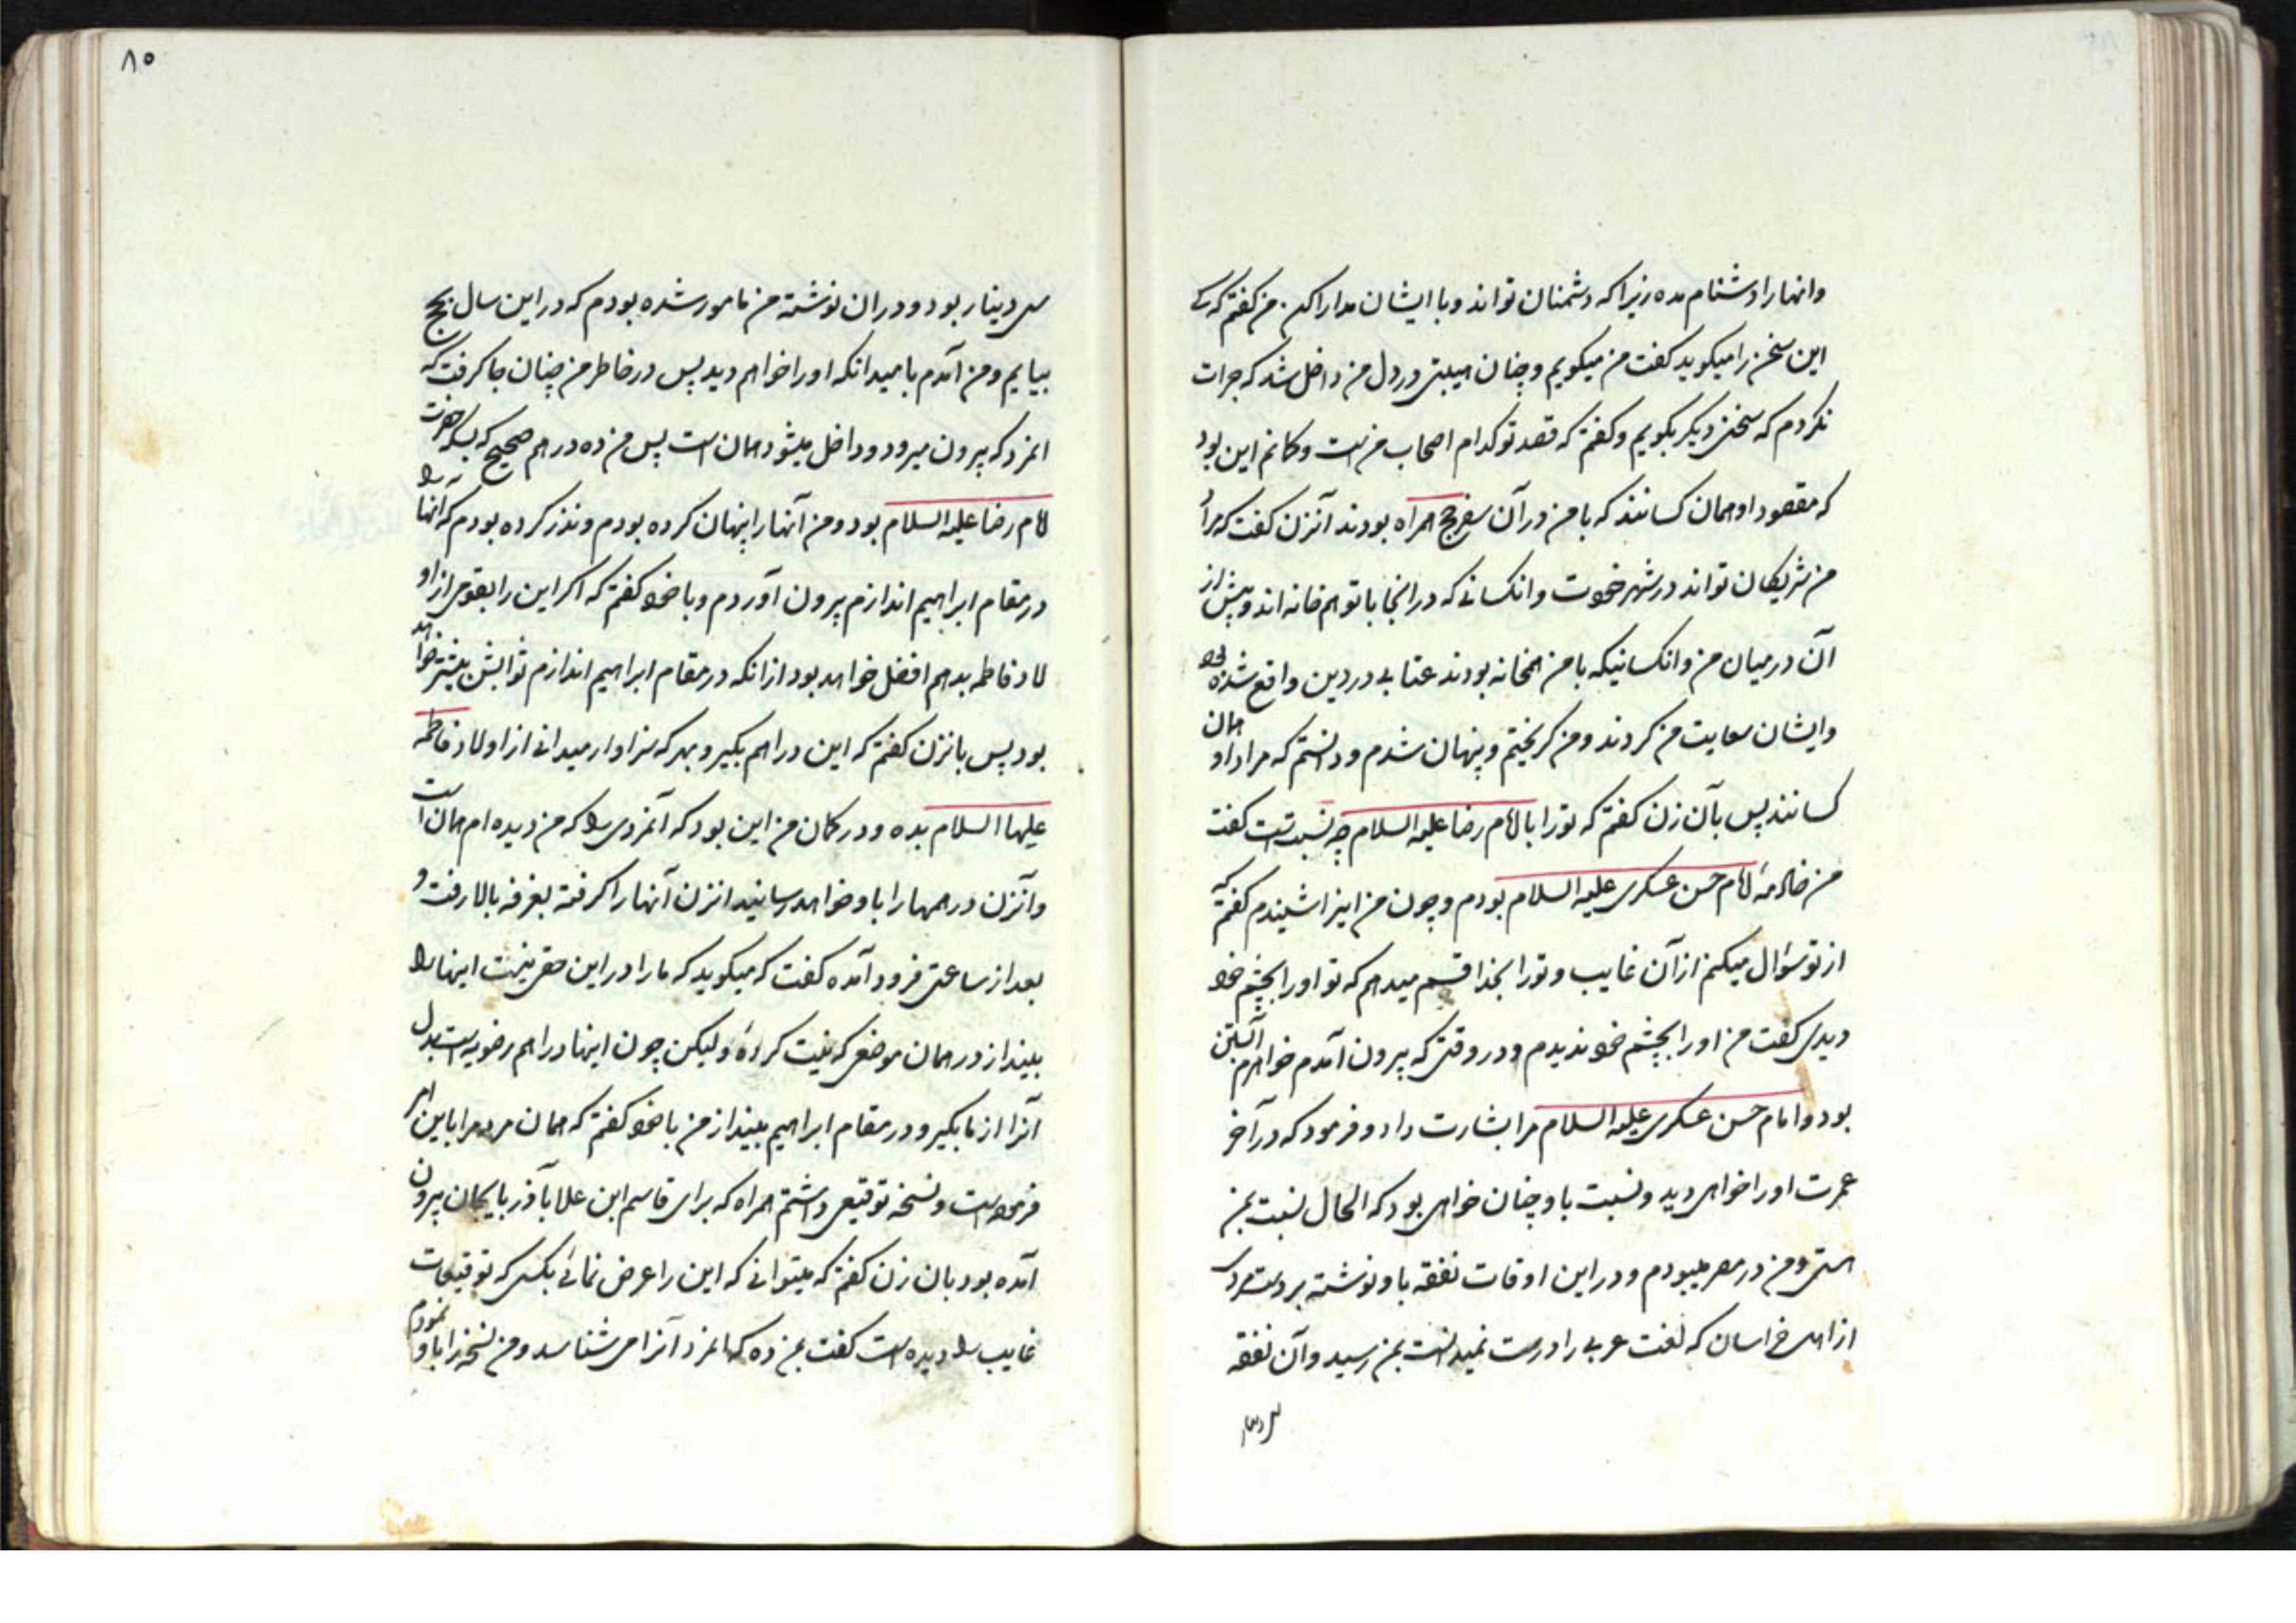 وانها را دشنام مده زیرا که دشمنان تواند و با ایشان مدارا کن من گفتم که کی
این سخن را میکوید کفت من میکویم و چنان هیبتی در دل من داخل شد که جرات
نکردم که سخنی دیکر بکویم و کفتم که قصد تو کدام اصحاب من است و کمانم این بود
که مقصود او همان کسانند که با من در آن سفر حج همراه بودند آنزن کفت که مراد
من شریکان تواند در شهر خودت و انکسانی که در انجا با تو همخانه اند و پیش از
آن در میان من و انکسانیکه با من همخانه بودند عتابی در دین واقع شده بود
وایشان سعایت من کردند و من کریختم و پنهان شدم و دانستم که مراد او همان
کسانند پس بآن زن کفتم که تو را با امام رضا علیه السلام چه نسبت است کفت
من خادمهٔ امام حسن عسکری علیه السلام بودم و چون من اینرا شنیدم کفتم که
از تو سؤال میکنم از آن غایب و تو را بخدا قسم میدهم که تو او را بچشم خود
دیدی کفت من او را بچشم خود ندیدم و در وقتی که بیرون آمدم خواهرم آبستن
بود و امام حسن عسکری علیه السلام مرا بشارت داد و فرمود که در آخر
عمرت او را خواهی دید و نسبت باو چنان خواهی بود که الحال نسبت بمن
هستی و من در مصر میبودم و در این اوقات نفقه با و نوشته بر دست مردی
از اهل خراسان که لغت عربی را درست نمیدانست بمن رسید و آن نفقه
سی دینار
۸۵
سی دینار بود و در ان نوشته من مامور شده بودم که در این سال بحج
بیایم و من آمدم بامید انکه او را خواهم دید پس در خاطر من چنان جا کرفت که
انمرد که بیرون میرود و داخل میشود همان است پس من ده درهم صحیح که بسکه حضرت
امام رضا علیه السلام بود و من آنها را پنهان کرده بودم و نذر کرده بودم که انها را
در مقام ابراهیم اندازم بیرون آوردم و با خود کفتم که اکر این را بقومی از او
لاد فاطمه بدهم افضل خواهد بود از انکه در مقام ابراهیم اندازم ثوابش بیشتر خواهد
بود پس بانزن کفتم که این دراهم بکیر و بهر که سزاوار میدانی از اولاد فاطمه
علیها السلام بده و در کمان من این بود که آنمردی را که من دیده ام همان است
و آنزن درهمها را باو خواهد رسانید انزن آنها را کرفته بغرفه بالا رفت و
بعد از ساعتی فرود آمده کفت که میکوید که ما را در این حقی نیست اینها را
بینداز در همان موضعی که نیت کردهٔ و لیکن چون اینها دراهم رضویه است بدل
آنرا از ما بکیر و در مقام ابراهیم بینداز من با خود کفتم که همان مرد مرا باین امر
فرموده است و نسخه توقیعی داشتم همراه که برای قاسم ابن علا بآذربایجان بیرون
آمده بود بان زن کفتم که میتوانی که این را عرض نمائی بکسی که توقیعات
غایب را دیده است کفت بمن ده که انمرد آنرا می شناسد و من نسخه را باو نمودم